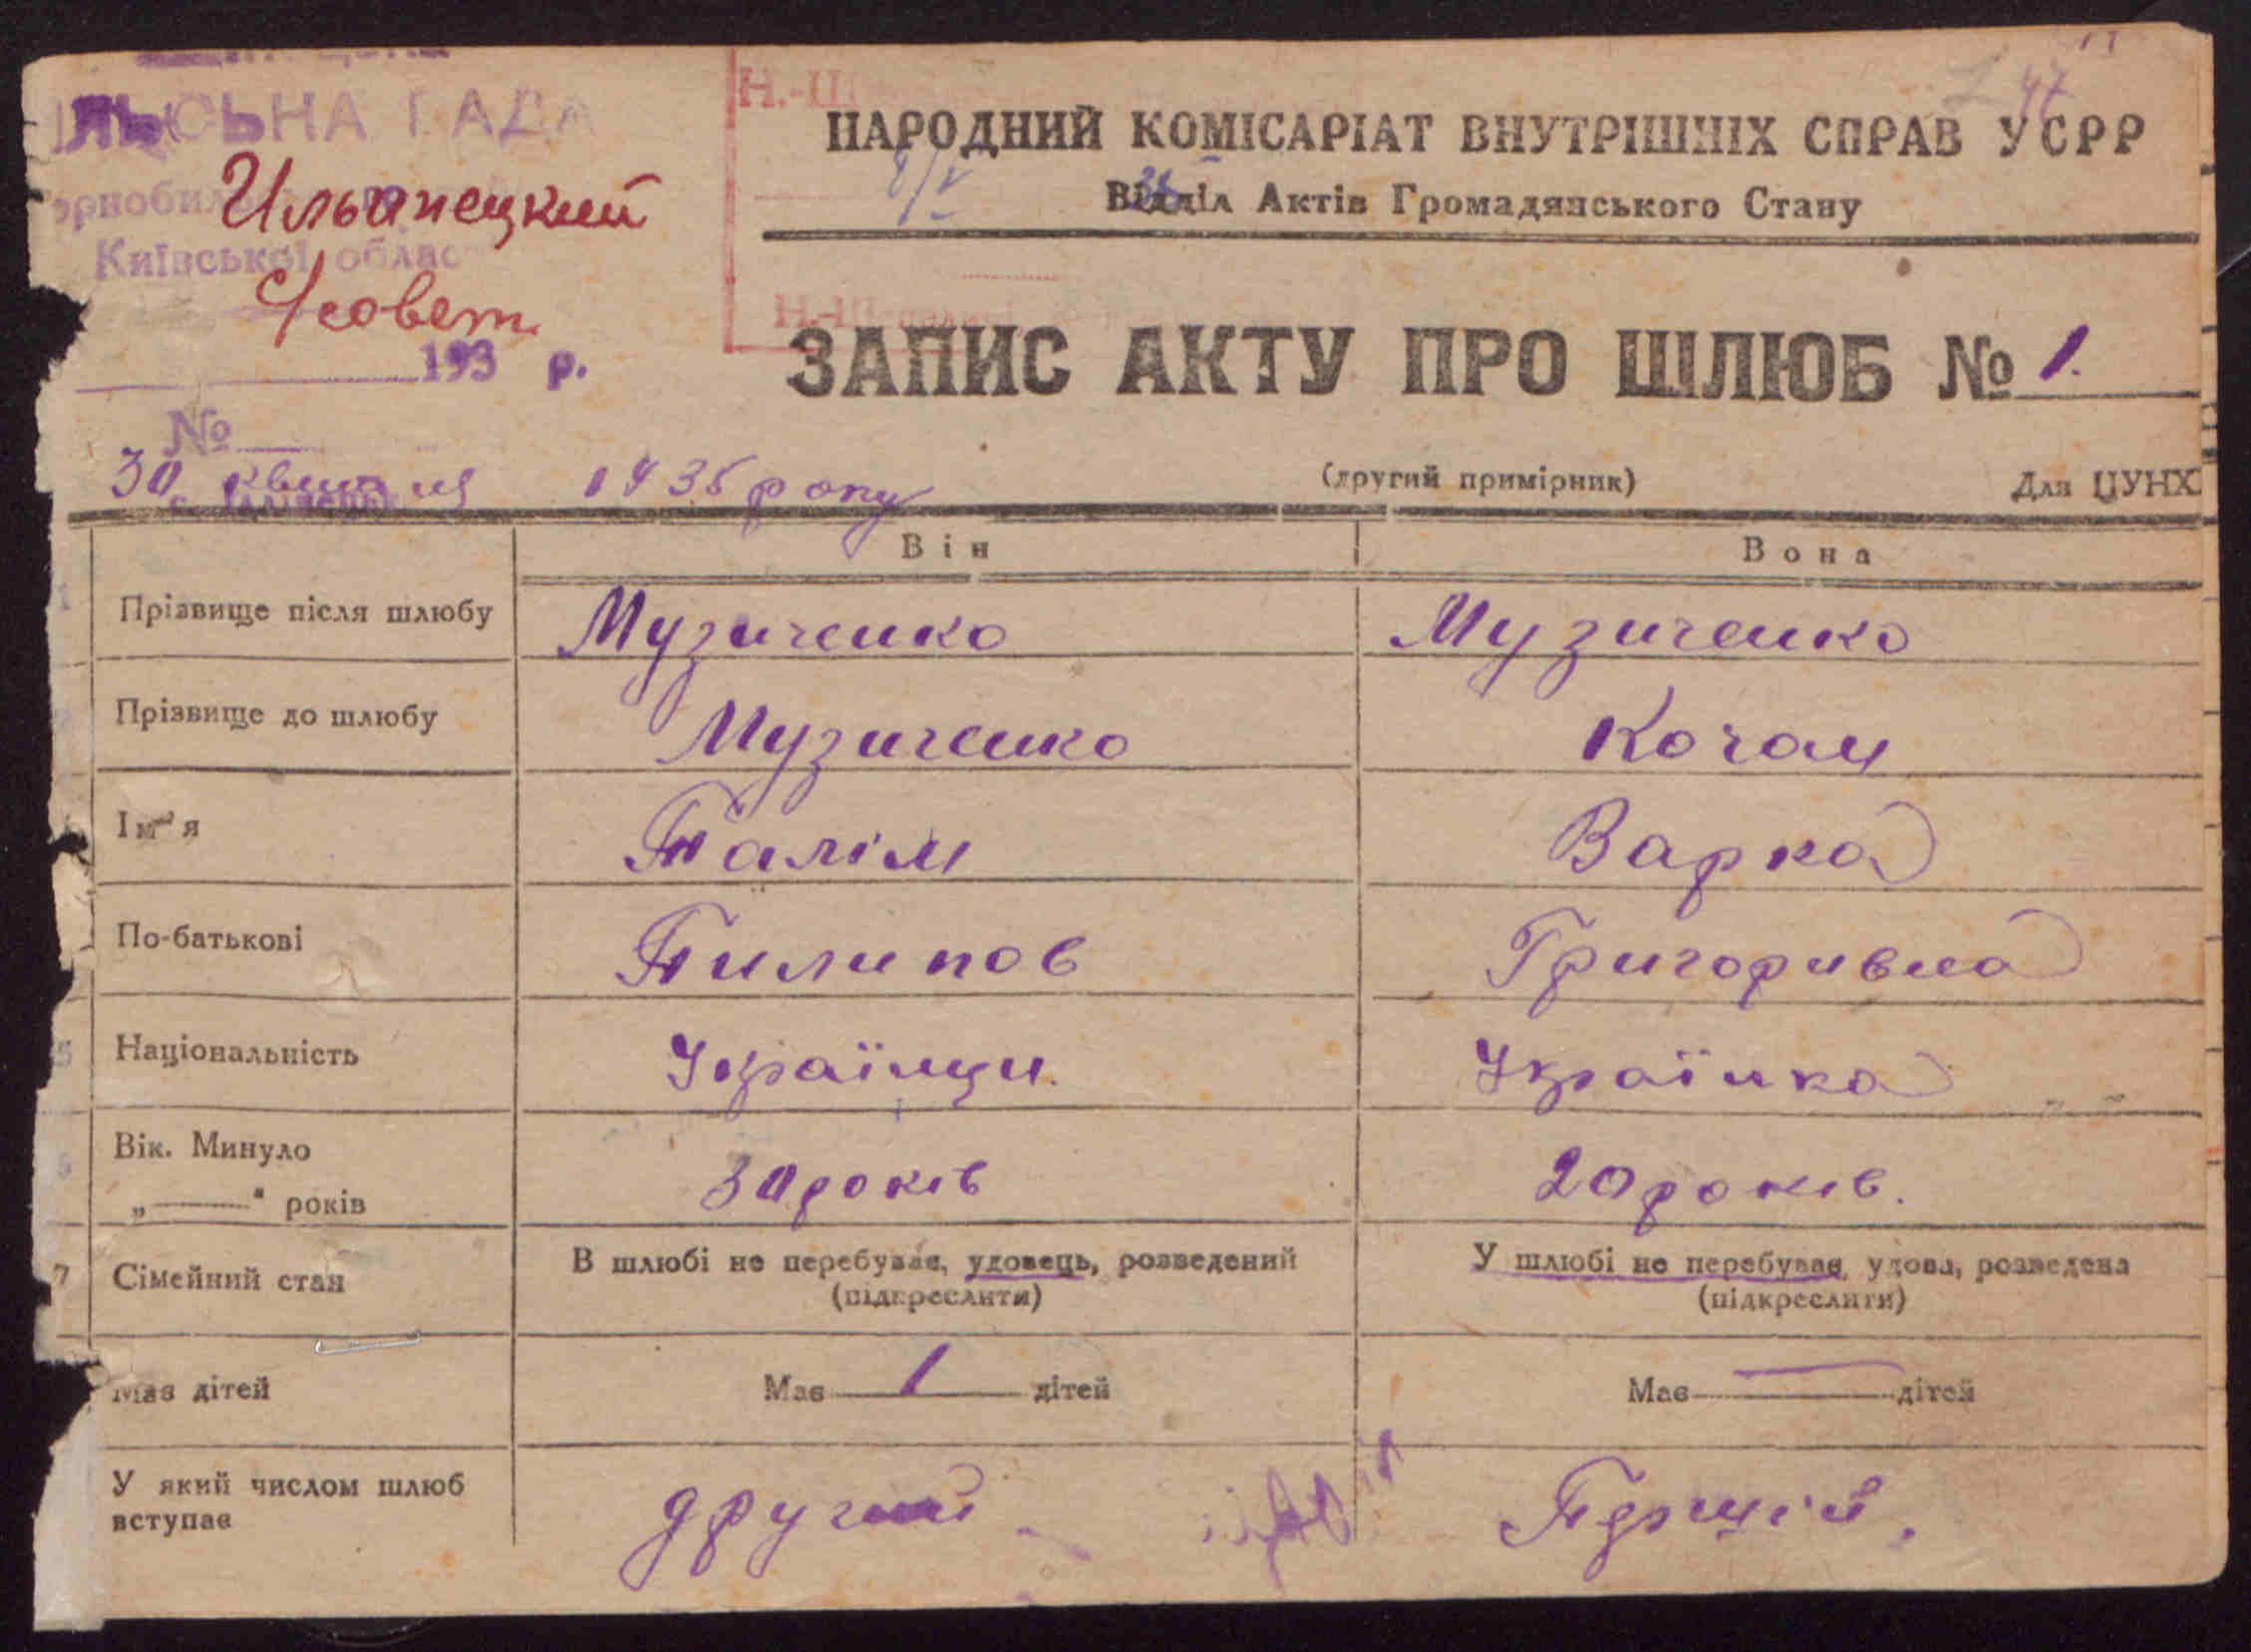 ЛЬСЬНА РАДА
Ильинецкий
Київської облас
С/совет
193 р.
№
30 квитня 1935 року
Н.-Ш
НАРОДНИЙ КОМІСАРІАТ ВНУТРІШНІХ СПРАВ УСРР
8/V
Відділ Актів Громадянського Стану
ЗАПИС АКТУ ПРО ШЛЮБ № 1.
(другий примірник) Для ЦУНХ
Він Вона
Прізвище після шлюбу Музиченко Музиченко
Прізвище до шлюбу Музиченко Кочан
Ім'я Палім Варка
По-батькові Пилипов Григоривна
Національність Українци. Українка
Вік. Минуло
„——" років 30 років 20 років.
7 Сімейний стан В шлюбі не перебуває, удовець, розведений У шлюбі не перебуває, удова, розведена
(підкреслити) (підкреслити)
Має дітей Має 1 дітей Має — дітей
У який числом шлюб
вступає другий Першій.